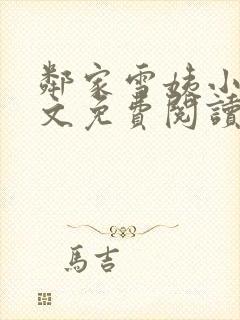 鄰家雪姨小
文免費閱讀
馬吉